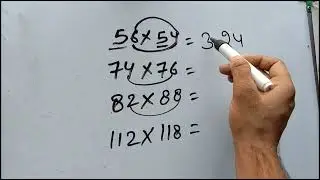 56 × 54 = 3 24
74 × 76 =
82 × 88 =
112 × 118 =